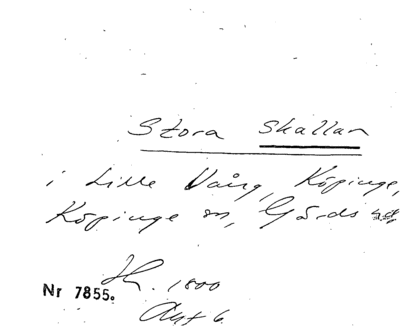 Stora Skallan
i Lille Vång, Köpinge,
Köpinge sn, Gärds hd
1800
Nr 7855.